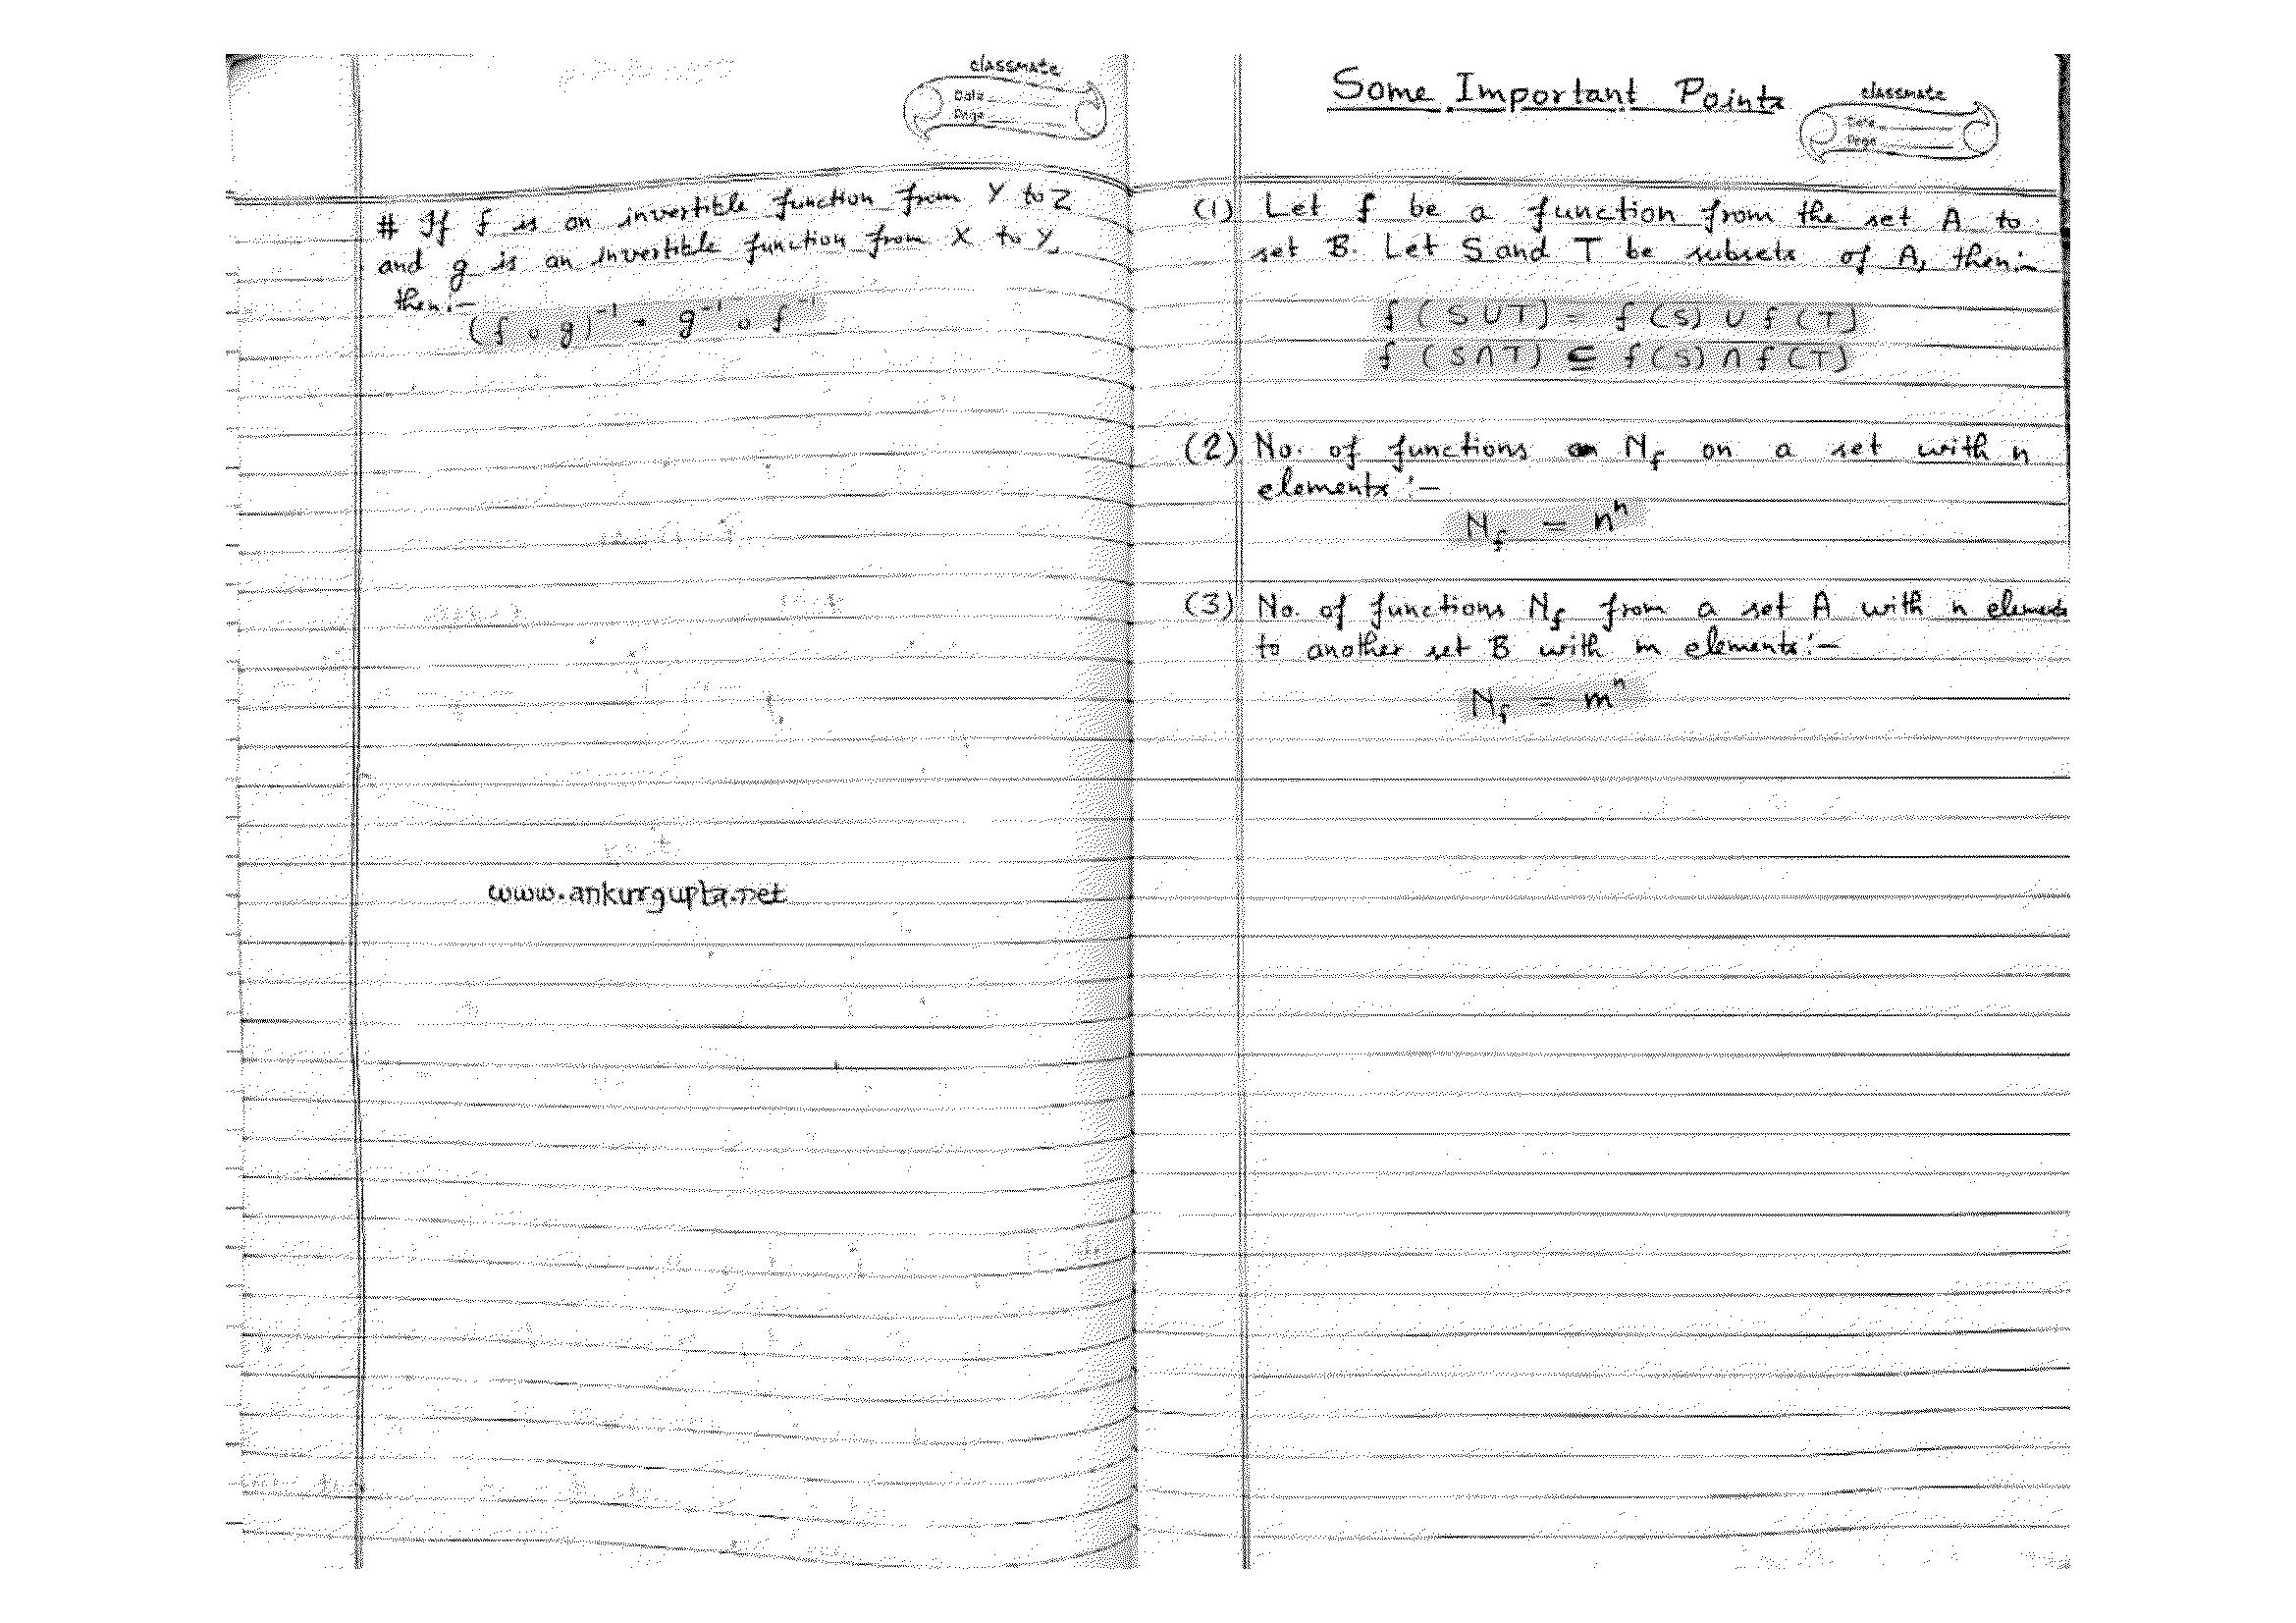 classmate
Date
Page
# If f is an invertible function from Y to Z
and g is an invertible function from X to Y,
then:-
(f ∘ g)⁻¹ = g⁻¹ ∘ f⁻¹
www.ankurgupta.net
Some Important Points
classmate
Date
Page
(1) Let f be a function from the set A to
set B. Let S and T be subsets of A, then:-
f (S ∪ T) = f (S) ∪ f (T)
f (S ∩ T) ⊆ f (S) ∩ f (T)
(2) No. of functions Nf on a set with n
elements :-
Nf = nⁿ
(3) No. of functions Nf from a set A with n elements
to another set B with m elements :-
Nf = mⁿ